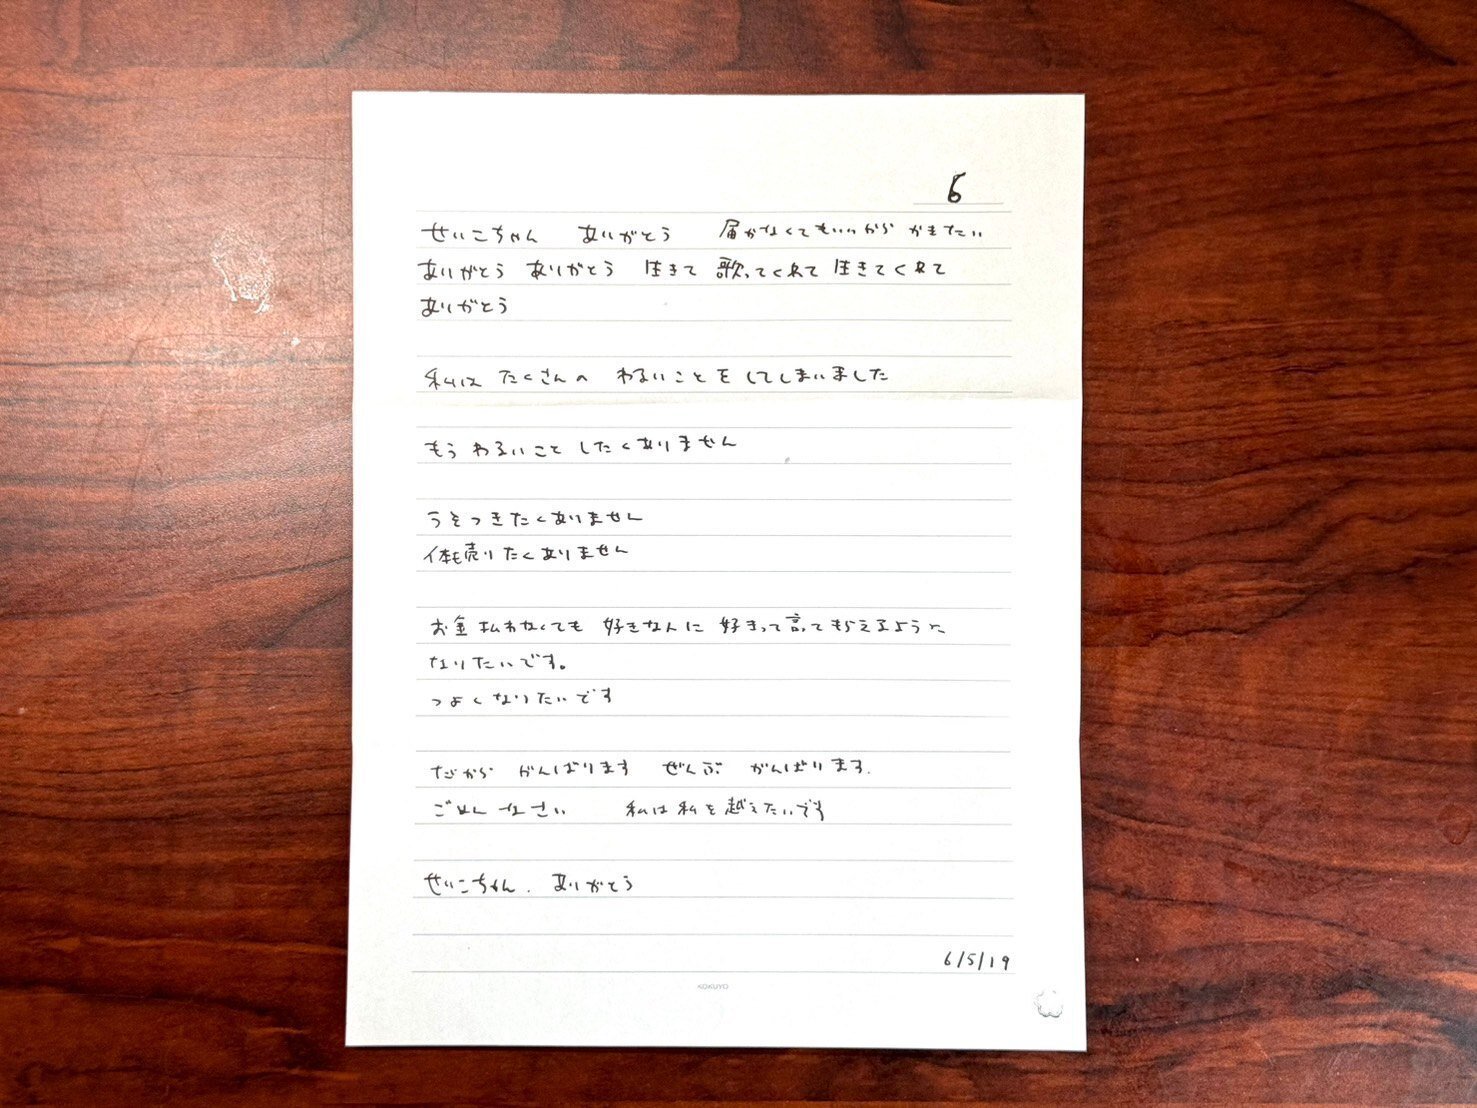 6
せいこちゃん ありがとう 届かなくてもいいから かきたい
ありがとう ありがとう 生きて 歌ってくれて 生きてくれて
ありがとう
私は たくさんの わるいことを してしまいました
もう わるいこと したくありません
うそつきたくありません
体も売りたくありません
お金払わなくても 好きな人に 好きって言ってもらえるように
なりたいです。
つよくなりたいです
だから がんばります ぜんぶ がんばります.
ごめんなさい 私は私を越えたいです
せいこちゃん. ありがとう
6/5/19
KOKUYO